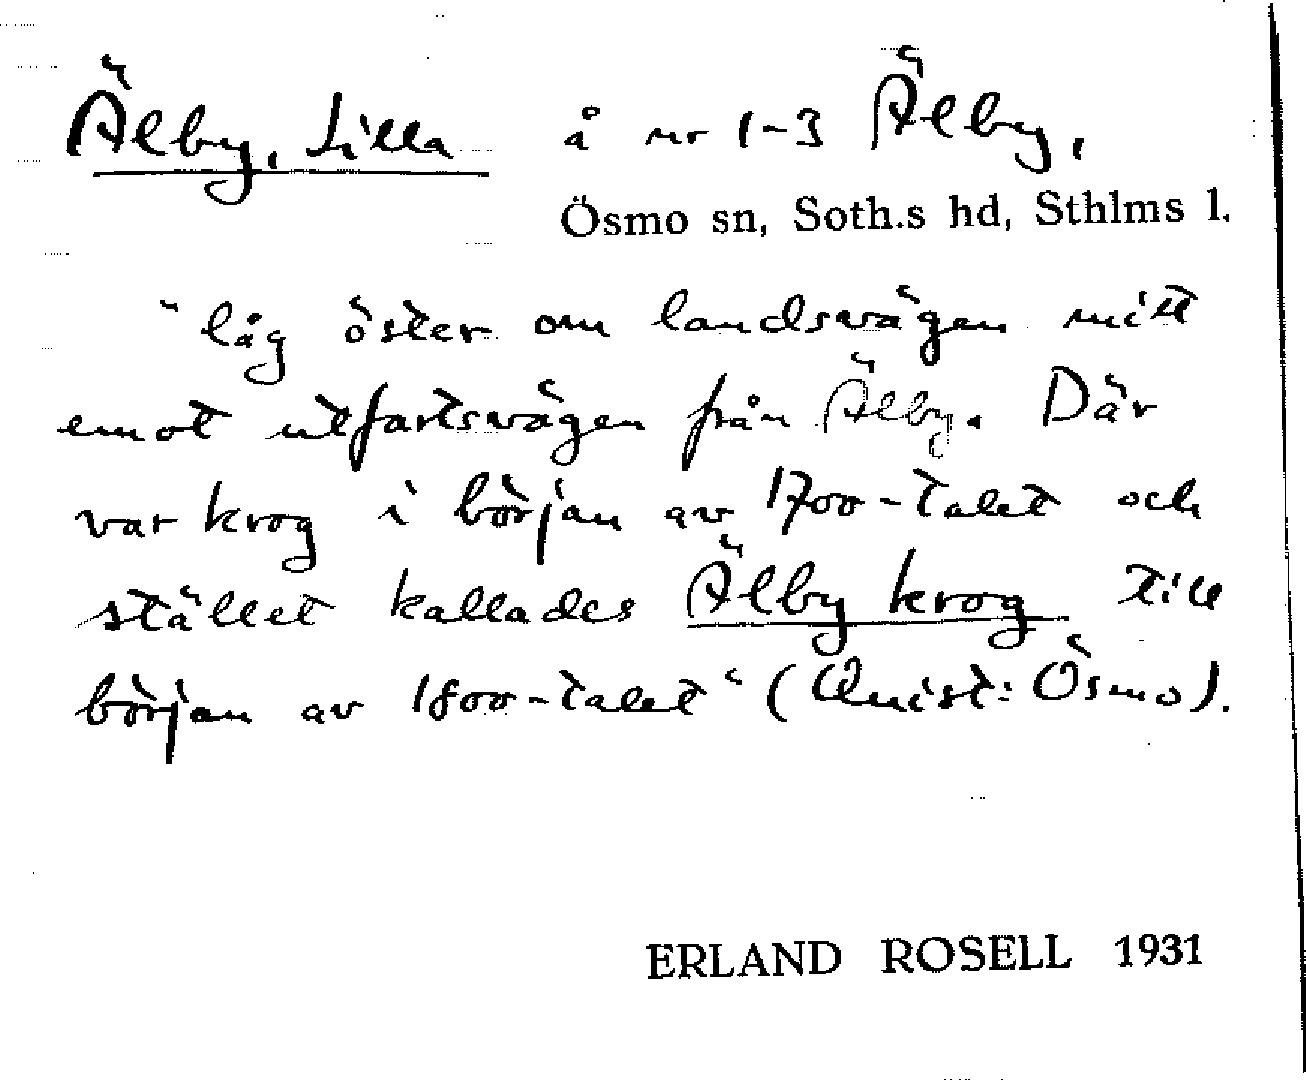 Älby, Lilla å nr 1-3 Älby,
Ösmo sn, Soth.s hd, Sthlms l.
"låg öster om landsvägen mitt
emot utfartsvägen från Älby. Där
var krog i början av 1700-talet och
stället kallades Älby krog till
början av 1800-talet" (Quist: Ösmo).
ERLAND ROSELL 1931